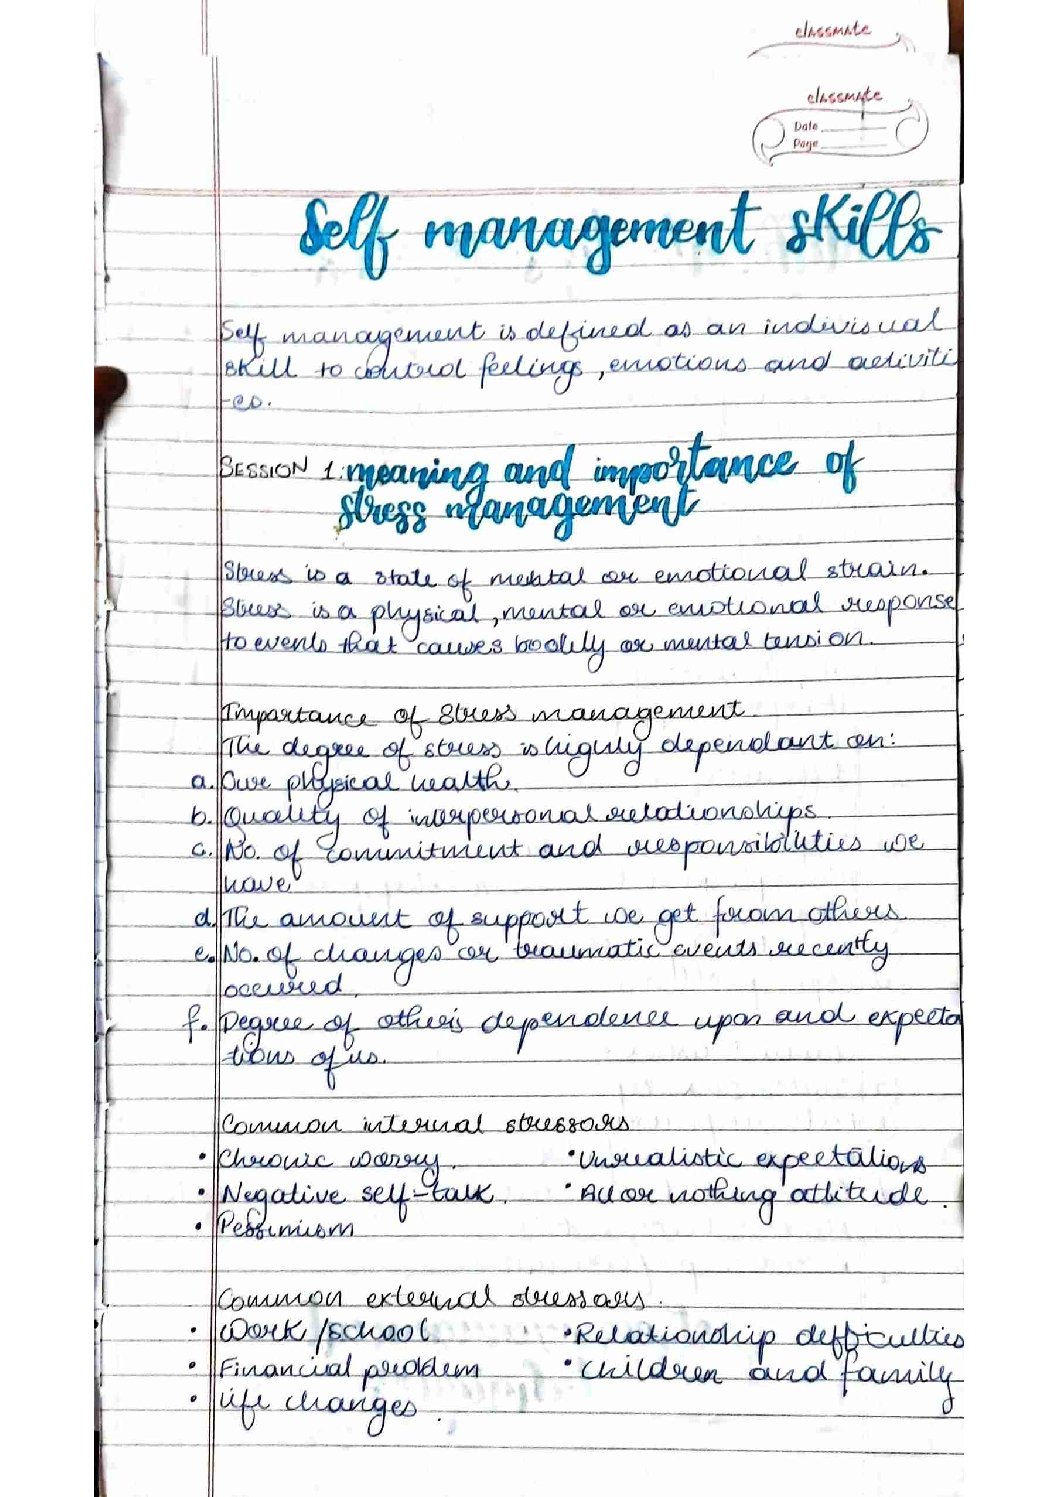 classmate
classmate
Date
Page
Self management skills
Self management is defined as an indivisual
skill to control feelings, emotions and activiti
-es.
SESSION 1: meaning and importance of
stress management
Stress is a state of mental or emotional strain.
Stress is a physical, mental or emotional response
to events that causes bodily or mental tension.
Importance of Stress management
The degree of stress is highly dependant on:
a. Our physical health.
b. Quality of interpersonal relationships.
c. No. of commitment and responsibilities we
have
d. The amount of support we get from others
e. No. of changes or traumatic events recently
occured.
f. Degree of other's dependence upon and expecta
tions of us.
Common internal stressors
• Chronic worry. • Unrealistic expectations
• Negative self-talk. • All or nothing attitude.
• Pessimism
Common external stressors.
• Work/school • Relationship defficulties
• Financial problem • Children and family
• Life changes.